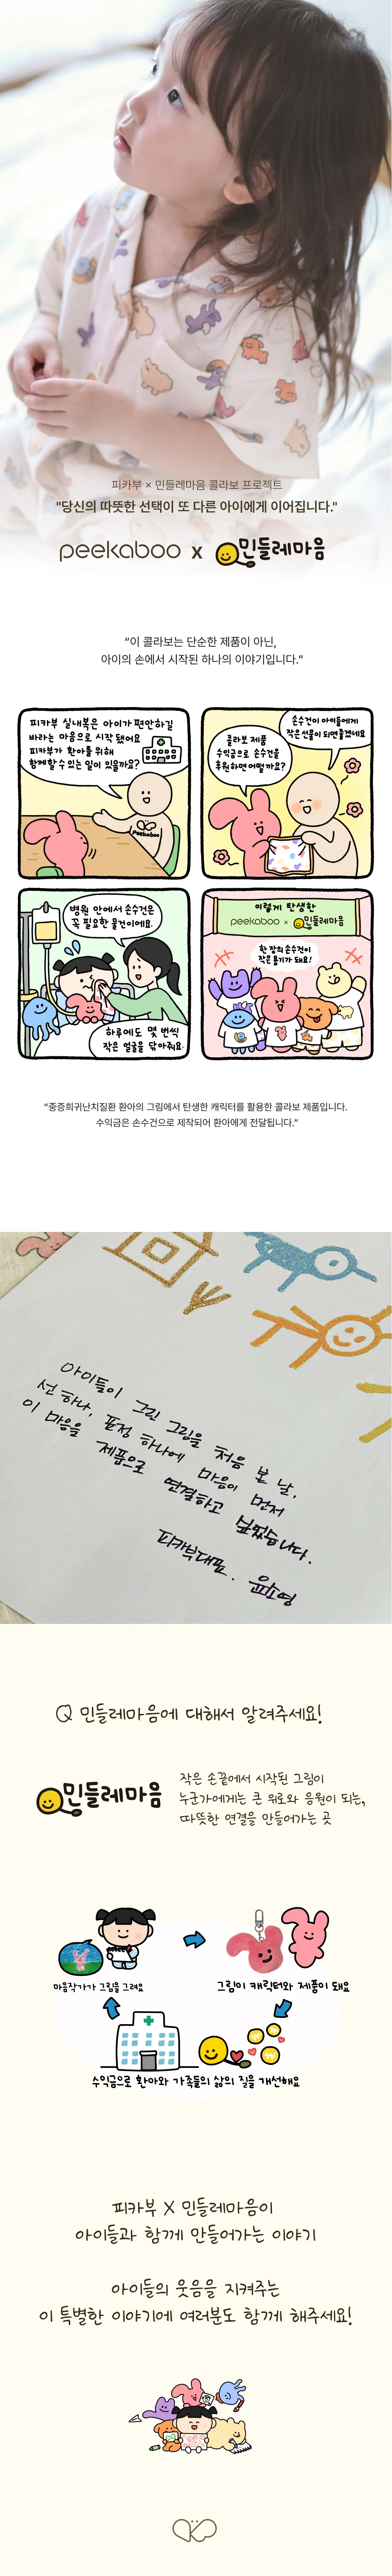 피카부 × 민들레마음 콜라보 프로젝트
"당신의 따뜻한 선택이 또 다른 아이에게 이어집니다."
peekaboo x 민들레마음
“이 콜라보는 단순한 제품이 아닌,
아이의 손에서 시작된 하나의 이야기입니다.”
피카부 실내복은 아이가 편안하길
바라는 마음으로 시작됐어요
피카부가 환아를 위해
함께할 수 있는 일이 있을까요?
Peekaboo
콜라보 제품
수익금으로 손수건을
후원하면 어떨까요?
손수건이 아이들에게
작은 선물이 되면 좋겠네요
병원 안에서 손수건은
꼭 필요한 물건이에요.
하루에도 몇 번씩
작은 얼굴을 닦아줘요.
이렇게 탄생한
peekaboo × 민들레마음
한 장의 손수건이
작은 용기가 돼요!
“중증희귀난치질환 환아의 그림에서 탄생한 캐릭터를 활용한 콜라보 제품입니다.
수익금은 손수건으로 제작되어 환아에게 전달됩니다.”
아이들이 그린 그림을 처음 본 날,
선 하나, 표정 하나에 마음이 먼저
이 마음을 제품으로 연결하고 싶었습니다.
피카부대표. 윤소영
Q 민들레마음에 대해서 알려주세요!
민들레마음
작은 손끝에서 시작된 그림이
누군가에게는 큰 위로와 응원이 되는,
따뜻한 연결을 만들어가는 곳
마음작가가 그림을 그려요
그림이 캐릭터와 제품이 돼요
수익금으로 환아와 가족들의 삶의 질을 개선해요
피카부 X 민들레마음이
아이들과 함께 만들어가는 이야기
아이들의 웃음을 지켜주는
이 특별한 이야기에 여러분도 함께 해주세요!